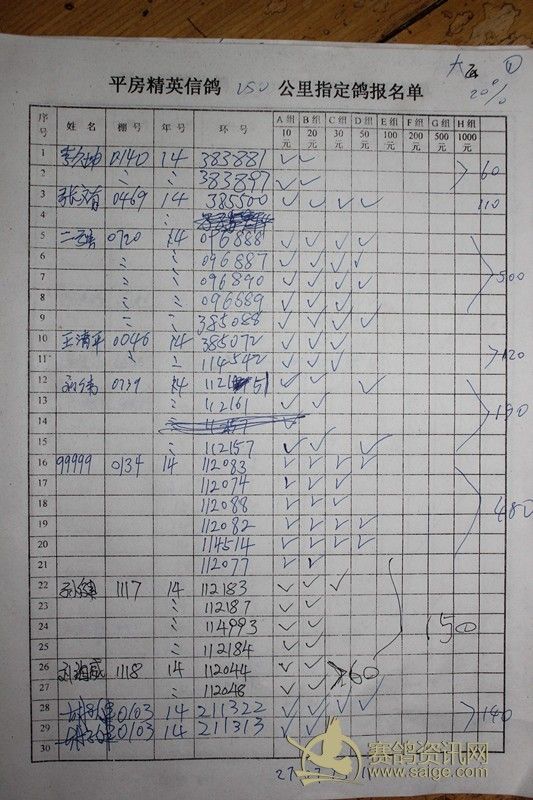 大 ①
20%
平房精英信鸽 150 公里指定鸽报名单
序号 姓名 棚号 年号 环号 A组10元 B组20元 C组30元 D组50元 E组100元 F组200元 G组500元 H组1000元
1 0140 14 383881 ✓ ✓
2 〃 383897 ✓ ✓ 60
3 0469 14 385500 ✓ ✓ ✓ ✓ 110
4 〃
5 0720 14 096888 ✓ ✓ ✓ ✓
6 〃 〃 096887 ✓ ✓ ✓ ✓
7 〃 〃 096890 ✓ ✓ ✓ ✓ 500
8 〃 〃 096889 ✓ ✓ ✓
9 〃 〃 385088 ✓ ✓ ✓ ✓
10 王清平 0046 14 385072 ✓ ✓ ✓
11 〃 〃 114542 ✓ ✓ ✓ 120
12 14 ✓ ✓ ✓
13 〃 112161 ✓ ✓ 190
14
15 〃 112157 ✓ ✓ ✓
16 99999 0134 14 112083 ✓ ✓ ✓ ✓
17 112074 ✓ ✓ ✓
18 112088 ✓ ✓ ✓ 480
19 112082 ✓ ✓ ✓ ✓
20 114514 ✓ ✓ ✓ ✓
21 112077 ✓ ✓
22 1117 14 112183 ✓ ✓ ✓
23 〃 112187 ✓ ✓
24 〃 114993 ✓ ✓ 150
25 〃 112184 ✓ ✓
26 1118 14 112044 ✓ ✓ 60
27 〃 112048 ✓ ✓
28 0103 14 211322 ✓ ✓ ✓ ✓
29 0103 14 211313 ✓ ✓ 140
30
27
赛鸽资讯网
www.saige.com